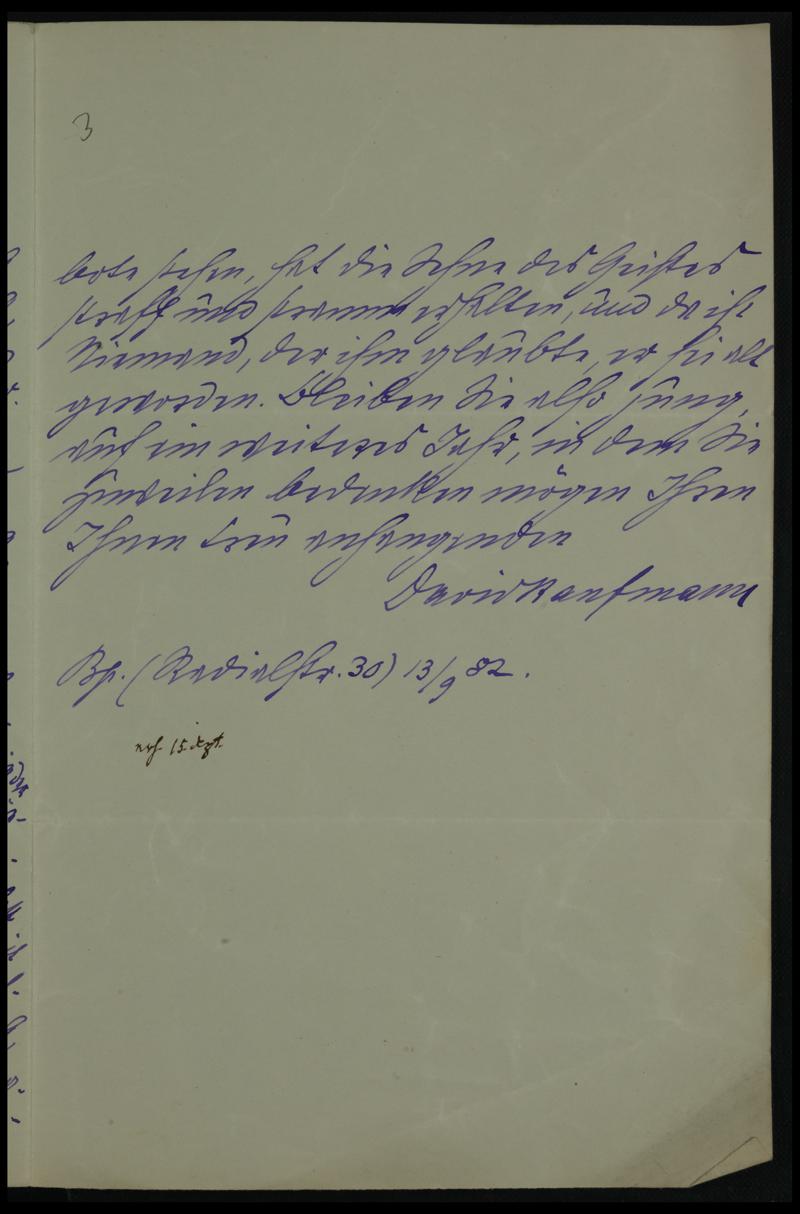 3
bote stehen, hat die Sehne des Geistes
straff und stramm erhalten, und da ist
Niemand, der ihm glaubte, er sei alt
geworden. Bleiben Sie also jung,
auf ein weiteres Jahr, in dem Sie
zuweilen bedenken mögen Ihren
Ihnen treu anhangenden
David Kaufmann
Bp. (Radialstr. 30) 13/9 82.
erh. 15. Sept.